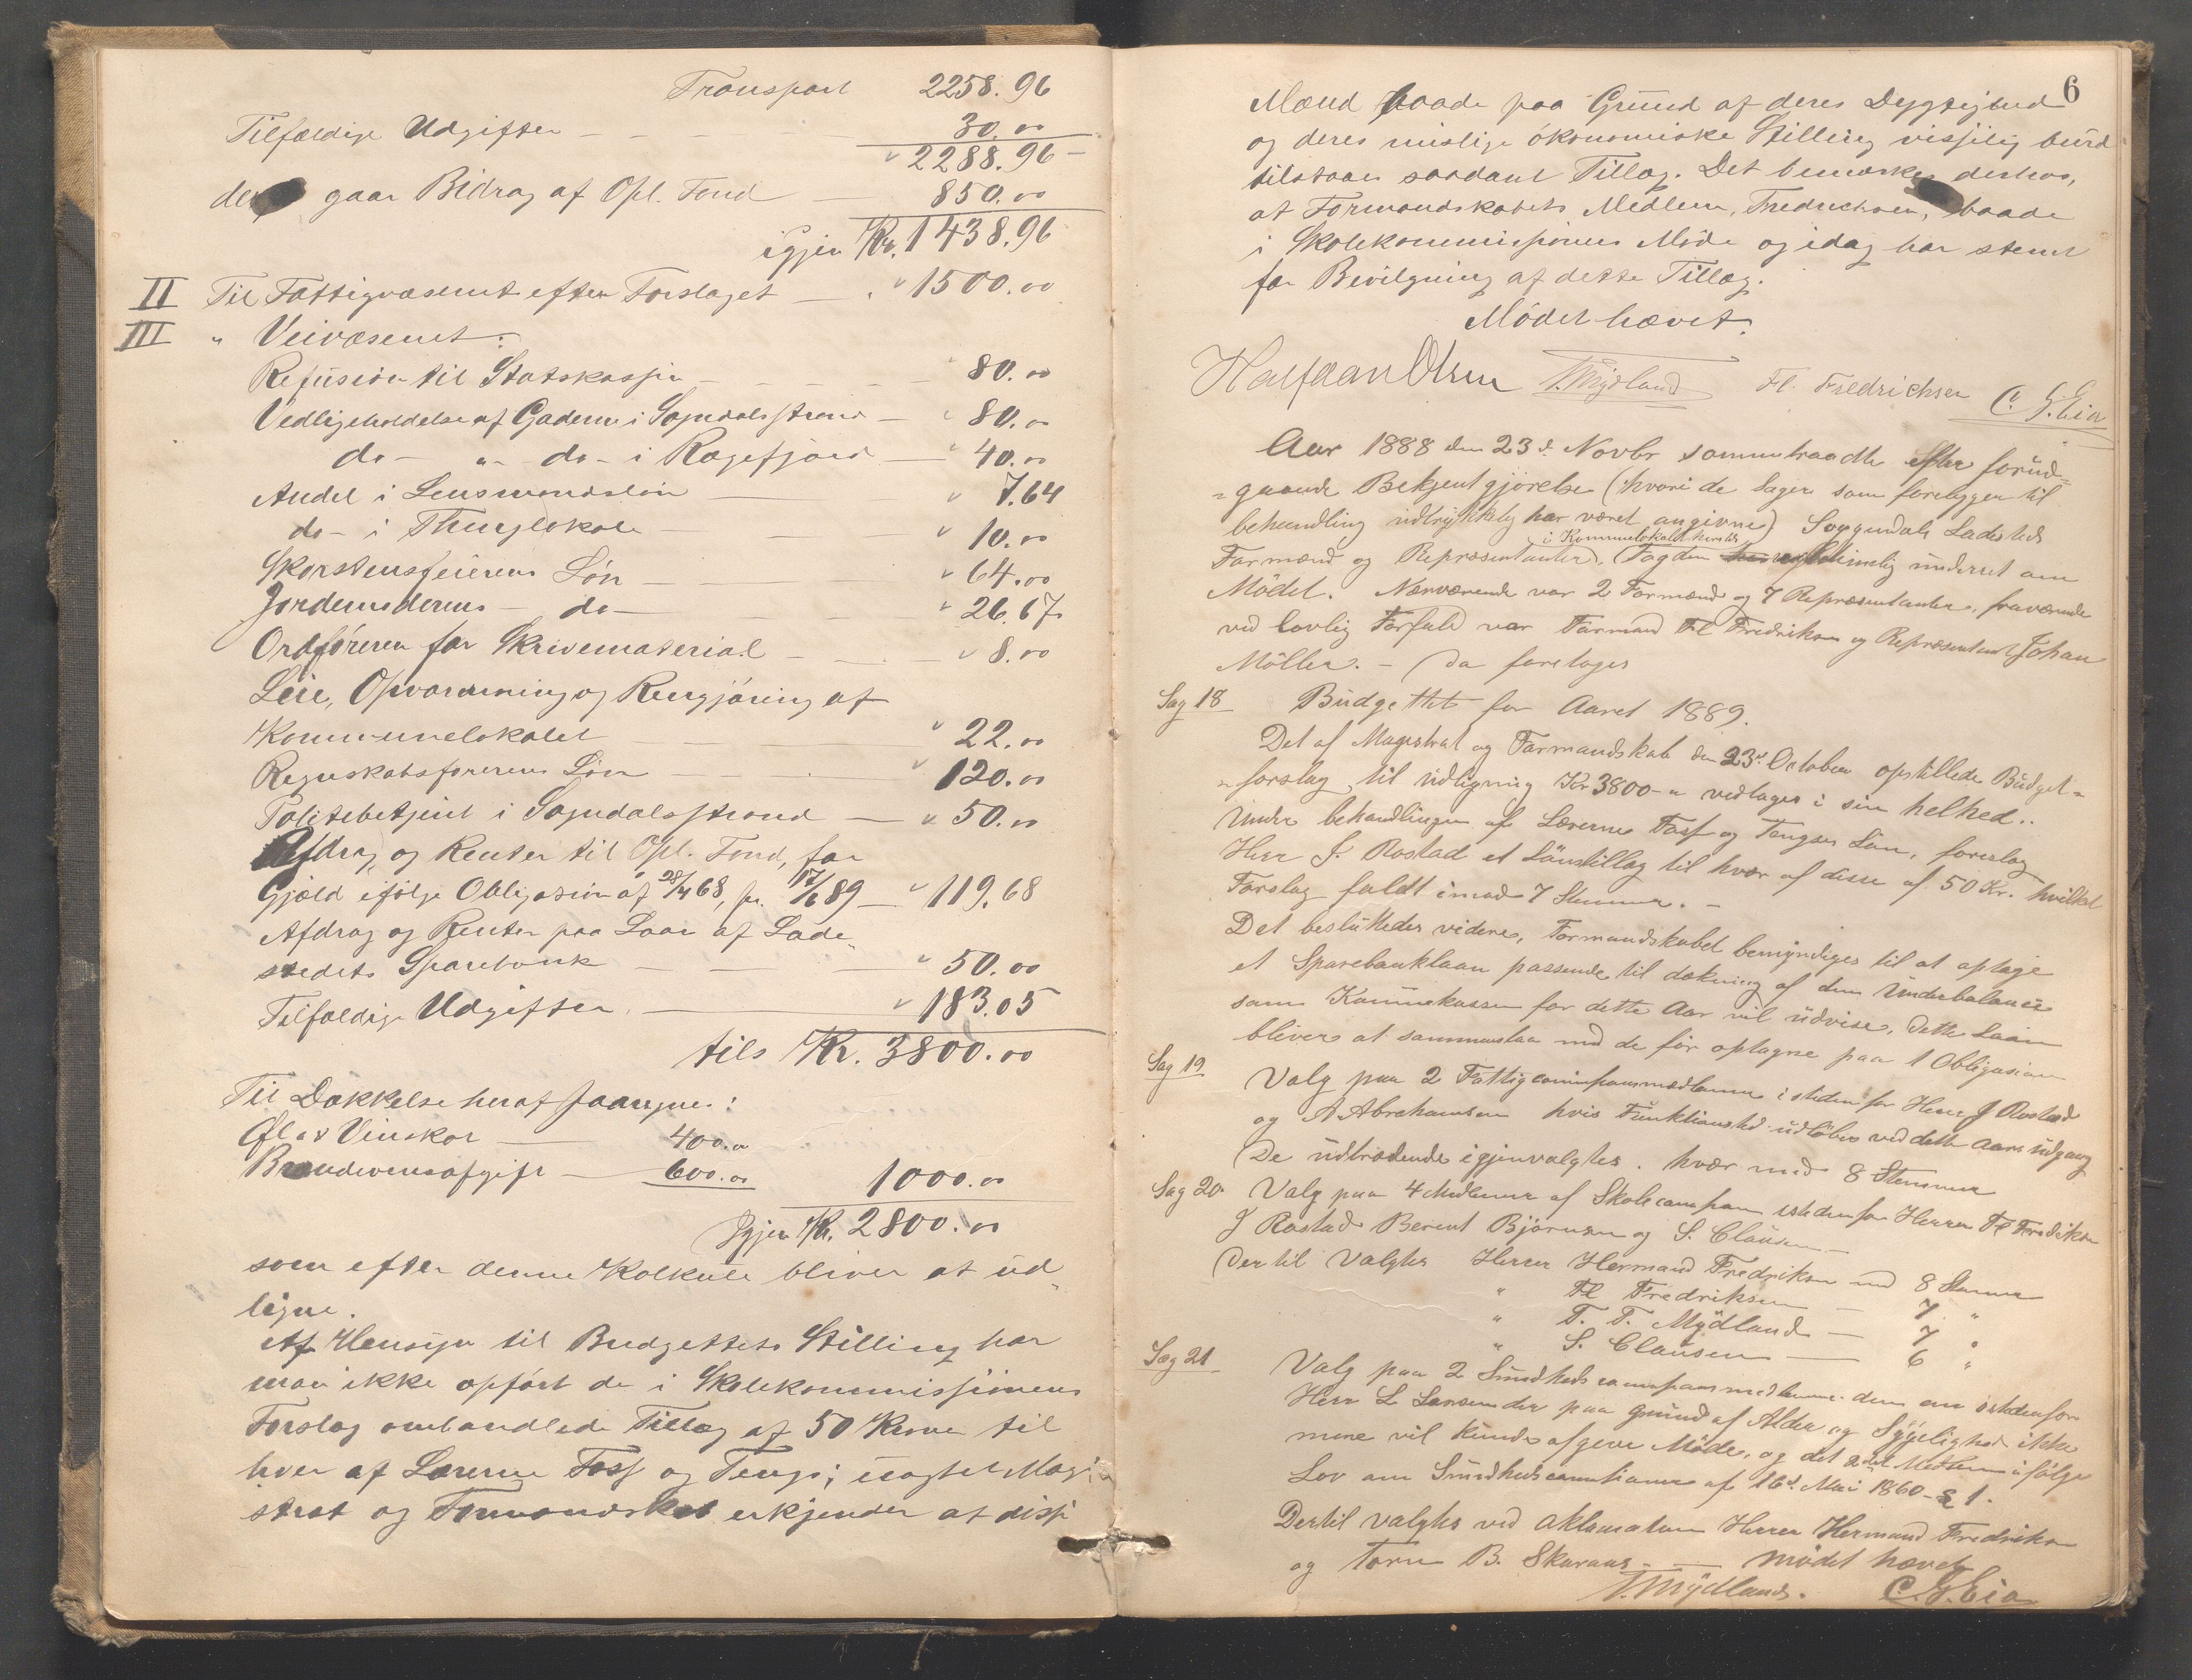 Transport 2258.96
Tilfældige Udgifter — — — 30.00
" 2288.96 —
gaar Bidrag af Opl. Fond — 850.00
igjen Kr. 1438.96
II Til Fattigvæsenet efter Forslaget — " 1500.00
III " Veivæsenet:
Refusion til Statskassen — — — — " 80.00
Vedligeholdelse af Gaderne i Sogndalsstrand — " 80.00
do — " — do — i Rægefjord — " 40.00
Andel i Lensmandsløn — " 7.64
do — i Thinglokale — — " 10.00
Skorstensfeierens Løn — — " 64.00
Jordemoderens — do — — " 26.67
Ordføreren for Skrivematerial — — — " 8.00
Leie, Opvarmning og Rengjøring af
Kommunelokalet — — — " 22.00
Regnskabsførerens Løn — — — " 120.00
Politibetjent i Sogndalsstrand — " 50.00
Afdrag og Renter til Opl. Fond, for
Gjæld ifølge Obligasion af 28/4 68, pr. 17/6 89 — " 119.68
Afdrag og Renter paa Laan af Lade-
stedets Sparebank — — — " 50.00
Tilfældige Udgifter — — " 183.05
tils Kr. 3800.00
Til Dækkelse heraf paaregnes:
Øl og Vinskat — 400.00
Brændevinsafgift — 600.00 1000.00
Igjen Kr. 2800.00
som efter denne Kalkule bliver at ud-
ligne.
Af Hensyn til Budgettets Stilling har
man ikke opført de i Skolekommissionens
Forslag omhandlede Tillæg af 50 Kroner til
hver af Lærerne Foss og Tengs; uagtet Magi-
strat og Formandskab erkjender at disse
6
Mænd baade paa Grund af deres Dygtighed
og deres mislige økonomiske Stilling visselig burde
tilstaaes saadant Tillæg. Det bemærkes derhos,
at Formandskabets Medlem, Fredrichsen, baade
i Skolekommissionens Møde og idag har stemt
for Bevilgning af dette Tillæg.
Mødet hævet.
Halfdan Olsen T. Mydland Fl. Fredrichsen C. G. Eia
Aar 1888 den 23d Novbr sammentraadte efter forud-
-gaaende Bekjentgjørelse (hvori de Sager som foreligger til
behandling udtrykkelig har været angivne) Soggendals Ladesteds
i Kommunelokalet herstds
Formænd og Repræsentanter. Fogden betimelig underret om
Mødet. Nærværende var 2 Formænd og 7 Repræsentanter, fraværende
ved lovlig Forfald var Formand Fl Fredriksen og Repræsentant Johan
Möller. — Da foretages
Sag 18 Budgettet for Aaret 1889.
Det af Magistrat og Formandskab den 23d October opstillede Budget-
-forslag, til udligning Kr 3800 - " vedtages i sin helhed..
Under behandlingen af Lærerne Foss og Tengs Løn, foreslog
Herr J. Rostad et Lönstillæg til hver af disse af 50 Kr. hvilket
Forslag faldt imod 7 Stemmer. —
Det besluttedes videre, Formandskabet bemyndiges til at optage
et Sparebanklaan passende til dækning af den Underbalance
som Kommekassen for dette Aar vil udvise, dette Laan
bliver at sammenslaa med de før optagne paa 1 Obligasion
Sag 19 Valg paa 2 Fattigcommissionsmedlemmer i steden for Herr J Rostad
og A Abrahamsen hvis Funktionstid udløber ved dette aars udgang
De udtrædende igjenvalgtes, hver med 8 Stemmer
Sag 20 Valg paa 4 Medlemmer af Skolecommission istedenfor Herrer Fl Fredriksen
J Rostad Berent Björnsen og S. Clausen —
Dertil valgtes Herrer Hermand Fredriksen med 8 Stemmer
" Fl Fredriksen — 7 "
" T. T. Mydland — 7 "
" S. Clausen — 6 "
Sag 21 Valg paa 2 Sundhedscommissionsmedlemmer den en istedenfor
Herr L Larsen der paa grund af Alder og Sygelighed ikke
mere vil kunde afgive Møde, og det andet Medlem ifølge
Lov om Sundhedscommissioner af 16d Mai 1860 - § 1.
Dertil valgtes ved aklamation Herrer Hermand Fredriksen
og Torn B. Skaraas — — Mødet hævet
T. Mydland. C. G. Eia